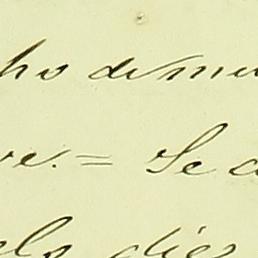 ho demu
re. = Se a
els dies